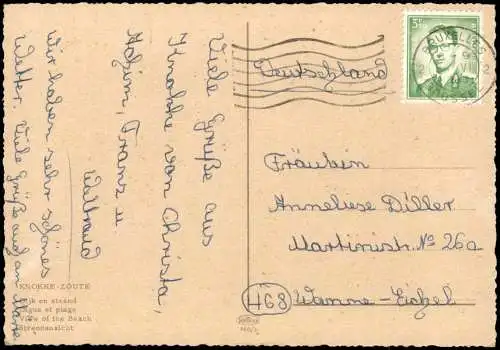 Viele Grüße aus
Knokke von Christa,
Achim, Franz u.
Waltraud
Wir haben sehr schönes
Wetter. Viele Grüße auch an Marie
Deutschland
Fräulein
Anneliese Diller
Martinistr. No 26a
468 Wanne-Eickel
KNOKKE-ZOUTE
Dijk en strand
Digue et plage
View of the Beach
Strandansicht
5F
BRUXELLES